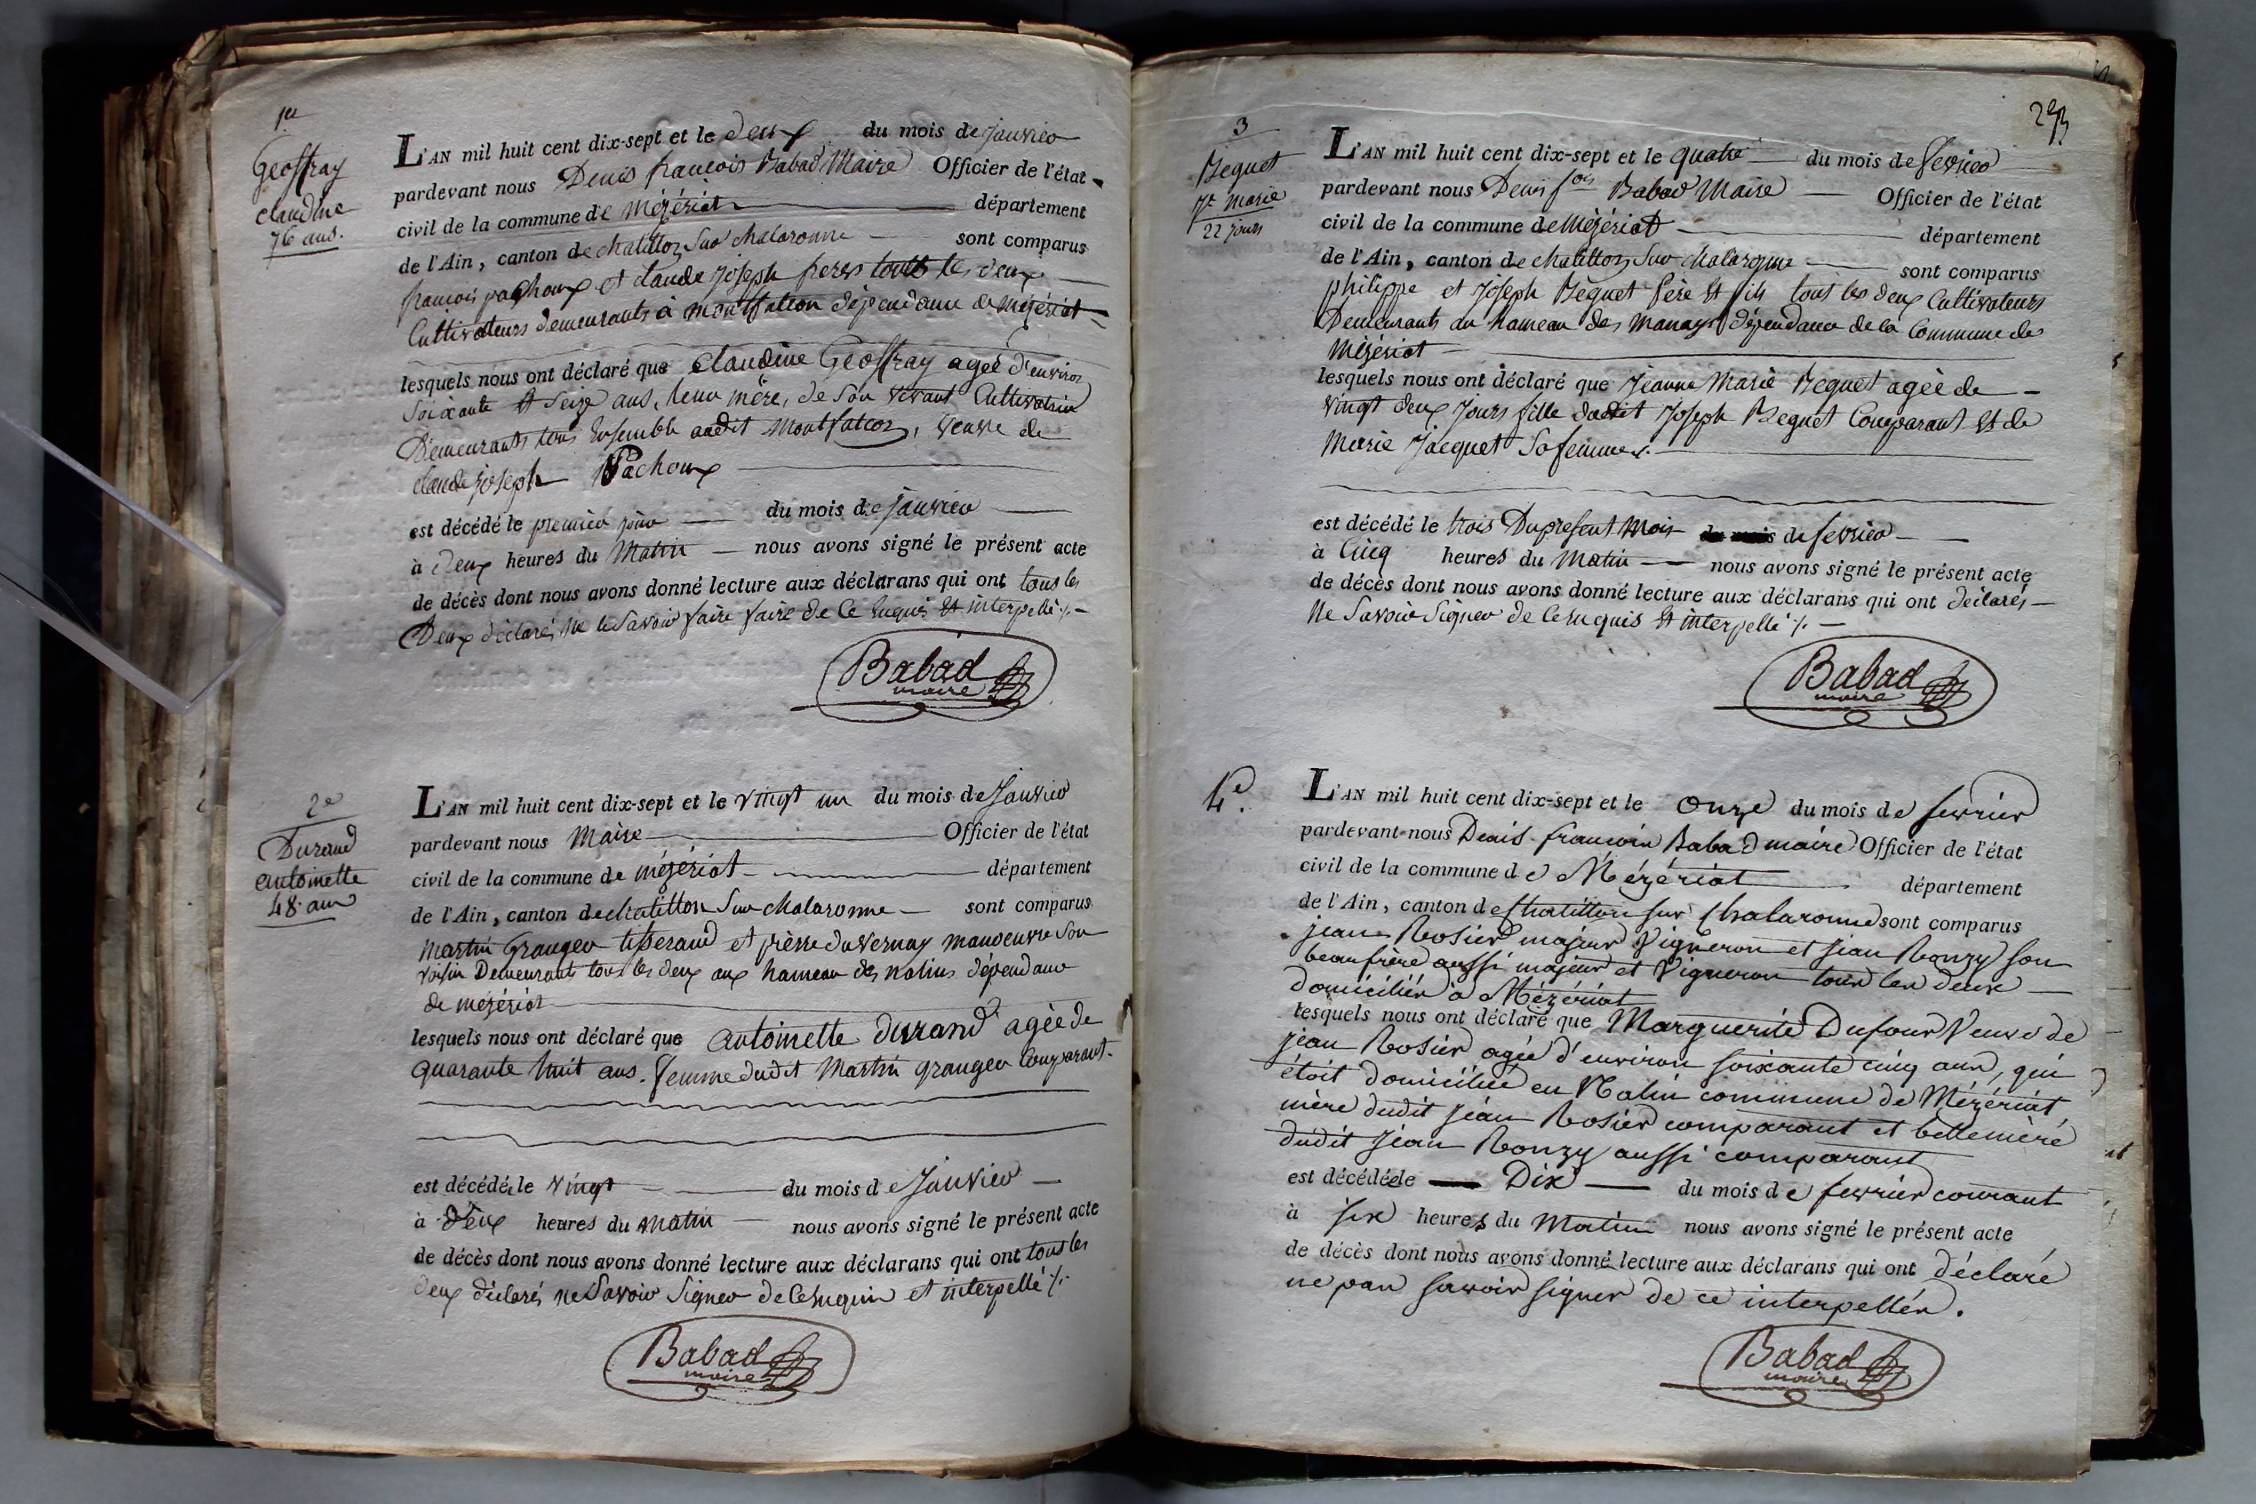 1er
Geoffray
claudine
76 ans.
L'AN mil huit cent dix-sept et le deux du mois de janvier
pardevant nous Denis françois Babad Maire Officier de l'état
civil de la commune de mézériat département
de l'Ain, canton de chatillon Sur chalaronne sont comparus
françois pachoux et claude joseph freres touts les deux
Cultivateurs demeurants à montfalcon dépendance de mézériat
lesquels nous ont déclaré que claudine Geoffray agée d'environ
Soixante et Seize ans, leur mère, de Son vivant Cultivatrice
Demeurants tous Ensemble audit Montfalcon, veuve de
claude joseph Pachoux
est décédé le premier jour du mois de janvier
à deux heures du Matin nous avons signé le présent acte
de décès dont nous avons donné lecture aux déclarans qui ont tous les
Deux déclarés ne le Savoir faire faire de Ce Enquis Et interpellé ./.
Babad
maire
2e
Durand
antoinette
48 ans
L'AN mil huit cent dix-sept et le vingt un du mois de Janvier
pardevant nous Maire Officier de l'état
civil de la commune de mézériat département
de l'Ain, canton de chatillon Sur chalaronne sont comparus
Martin Granger tisserand et pierre duvernay manoeuvre Son
voisin Demeurants tous les deux aux hameau des nalins dépendance
de mézériat
lesquels nous ont déclaré que antoinette durand agée de
quarante huit ans. femme dudit Martin granger Comparant.
est décédé le vingt du mois de Janvier
à deux heures du matin nous avons signé le présent acte
de décès dont nous avons donné lecture aux déclarans qui ont tous les
deux déclarés ne Savoir Signer de Ce Enquis et interpellé ./.
Babad
maire
293
3
Béguet
Jne marie
22 jours
L'AN mil huit cent dix-sept et le quatre du mois de fevrier
pardevant nous Denis fois Babad Maire Officier de l'état
civil de la commune de Mézériat département
de l'Ain, canton de chatillon Sur chalaronne sont comparus
philippe et Joseph Béguet Père et fils tous les deux Cultivateurs
Demeurants au hameau des manays dépendance de la Commune de
Mézériat
lesquels nous ont déclaré que Jeanne Marie Beguet agée de
vingt deux Jours fille dudit Joseph Beguet Comparant et de
Marie Jacquet Sa femme ./.
est décédé le trois Du present Mois de fevrier
à Cinq heures du matin nous avons signé le présent acte
de décès dont nous avons donné lecture aux déclarans qui ont déclarés
Ne Savoir Signer de Ce Enquis Et interpellé ./.
Babad
maire
4e.
L'AN mil huit cent dix-sept et le onze du mois de fevrier
pardevant nous Denis françois Babad maire Officier de l'état
civil de la commune de Mézériat département
de l'Ain, canton de Chatillon sur Chalaronne sont comparus
jean Rosier majeur Vigneron et jean Ronzy son
beaufrère aussi majeur et Vigneron tous les deux
domiciliés à Mézériat
lesquels nous ont déclaré que Marguerite Dufour Veuve de
jean Rosier agée d'environ soixante cinq ans, qui
étoit domiciliée en Nalin commune de Mézériat
mère dudit jean Rosier comparant et bellemère
dudit jean Ronzy aussi comparant
est décédée le Dix du mois de fevrier courant
à six heures du Matin nous avons signé le présent acte
de décès dont nous avons donné lecture aux déclarans qui ont déclaré
ne pas savoir signer de ce interpellés.
Babad
maire